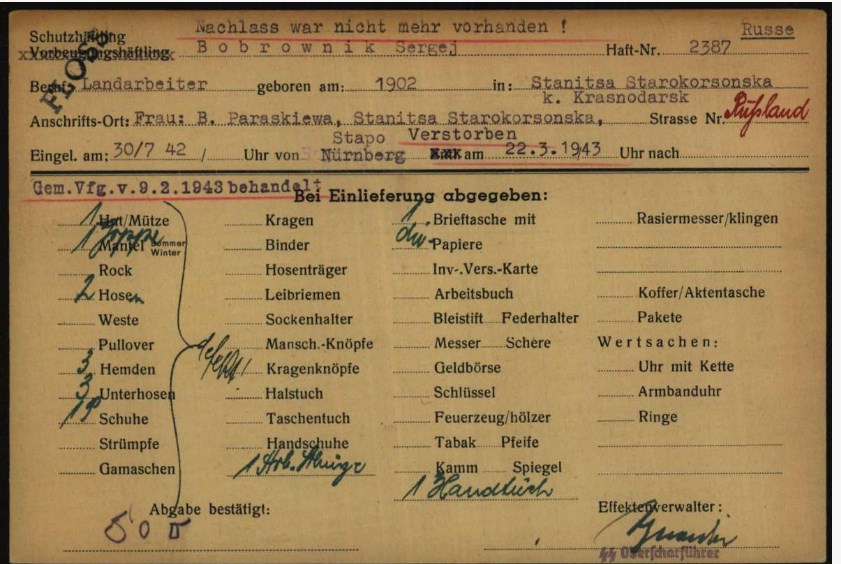 Nachlass war nicht mehr vorhanden !
Russe
Schutzhäftling
Vorbeugungshäftling
Bobrownik Sergej
Haft-Nr. 2387
FLOSS
Beruf: Landarbeiter geboren am: 1902 in: Stanitsa Starokorsonska
k. Krasnodarsk
Anschrifts-Ort: Frau: B. Paraskiewa, Stanitsa Starokorsonska, Strasse Nr. Rußland
Stapo Verstorben
Eingel. am: 30/7 42 / Uhr von Nürnberg am 22.3.1943 Uhr nach
Gem.Vfg.v.9.2.1943 behandelt
Bei Einlieferung abgegeben:
1 Hut/Mütze Kragen 1 Brieftasche mit Rasiermesser/klingen
1 Joppe Mantel Sommer Winter Binder div. Papiere
Rock Hosenträger Inv-.Vers.-Karte
2 Hosen Leibriemen Arbeitsbuch Koffer/Aktentasche
Weste Sockenhalter Bleistift Federhalter Pakete
Pullover Mansch.-Knöpfe Messer Schere Wertsachen:
3 Hemden defekt! Kragenknöpfe Geldbörse Uhr mit Kette
3 Unterhosen Halstuch Schlüssel Armbanduhr
1 P Schuhe Taschentuch Feuerzeug/hölzer Ringe
Strümpfe Handschuhe Tabak Pfeife
Gamaschen 1 Arb. Kamm Spiegel
1 Handtuch
Abgabe bestätigt: Effektenverwalter:
Oberscharführer